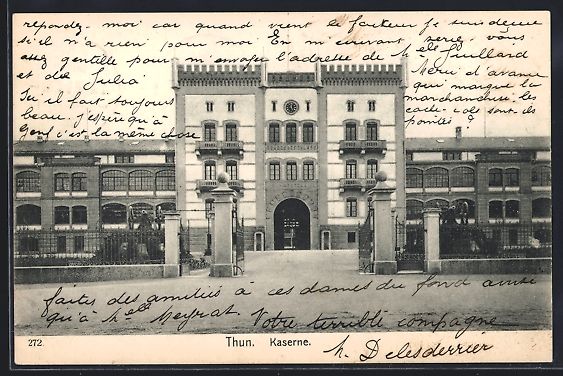 répondez moi car quand vient le facteur je suis déçue
s'il n'a rien pour moi En m'écrivant serez vous
assez gentille pour m'envoyer l'adresse de Melle Juillard
et de Julia
Ici il fait toujours
beau. J'espère qu'à
Genf c'est la même chose
Merci d'avance
qui marque la
marchandise, les
cache-cols sont ils
pointés ?
faites des amitiés à ces dames du fond ainsi
qu'à Melle Meyrat. Votre terrible compagne
M. Delesderrier
272.
Thun. Kaserne.